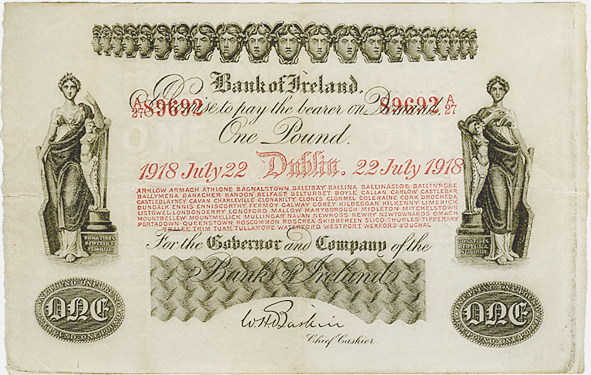 Bank of Ireland.
A/27 89692 I Promise to pay the bearer on Demand 89692 A/27
One Pound.
1918 July 22 Dublin, 22 July 1918
ARKLOW ARMACH ATHLONE BAGNALSTOWN BALLIBAY BALLINA BALLINASLOE BALLINROBE
BALLYMENA BANAGHER BANDON BELFAST BELTURBET BOYLE CALLAN CARLOW CASTLEBAR
CASTLEBLAYNEY CAVAN CHARLEVILLE CLONAKILTY CLONES CLONMEL COLERAINE CORK DROGHEDA
DUNDALK ENNIS ENNISCORTHY FERMOY GALWAY GOREY KILBEGGAN KILKENNY LIMERICK
LISTOWEL LONDONDERRY LONGFORD MALLOW MARYBOROUGH MIDLETON MITCHELSTOWN
MOUNTBELLEW MOUNTMELLICK MULLINGAR NAVAN NEWROSS NEWRY NEWTOWNARDS OMACH
PORTADOWN ROSCREA SKIBBEREEN SLIGO THURLES TIPPERARY
TRALEE TRIM TUAM TULLAMORE WATERFORD WESTPORT WEXFORD YOUGHAL
For the Governor and Company of the
Bank of Ireland
ONE
ONE
W H Baskin
Chief Cashier